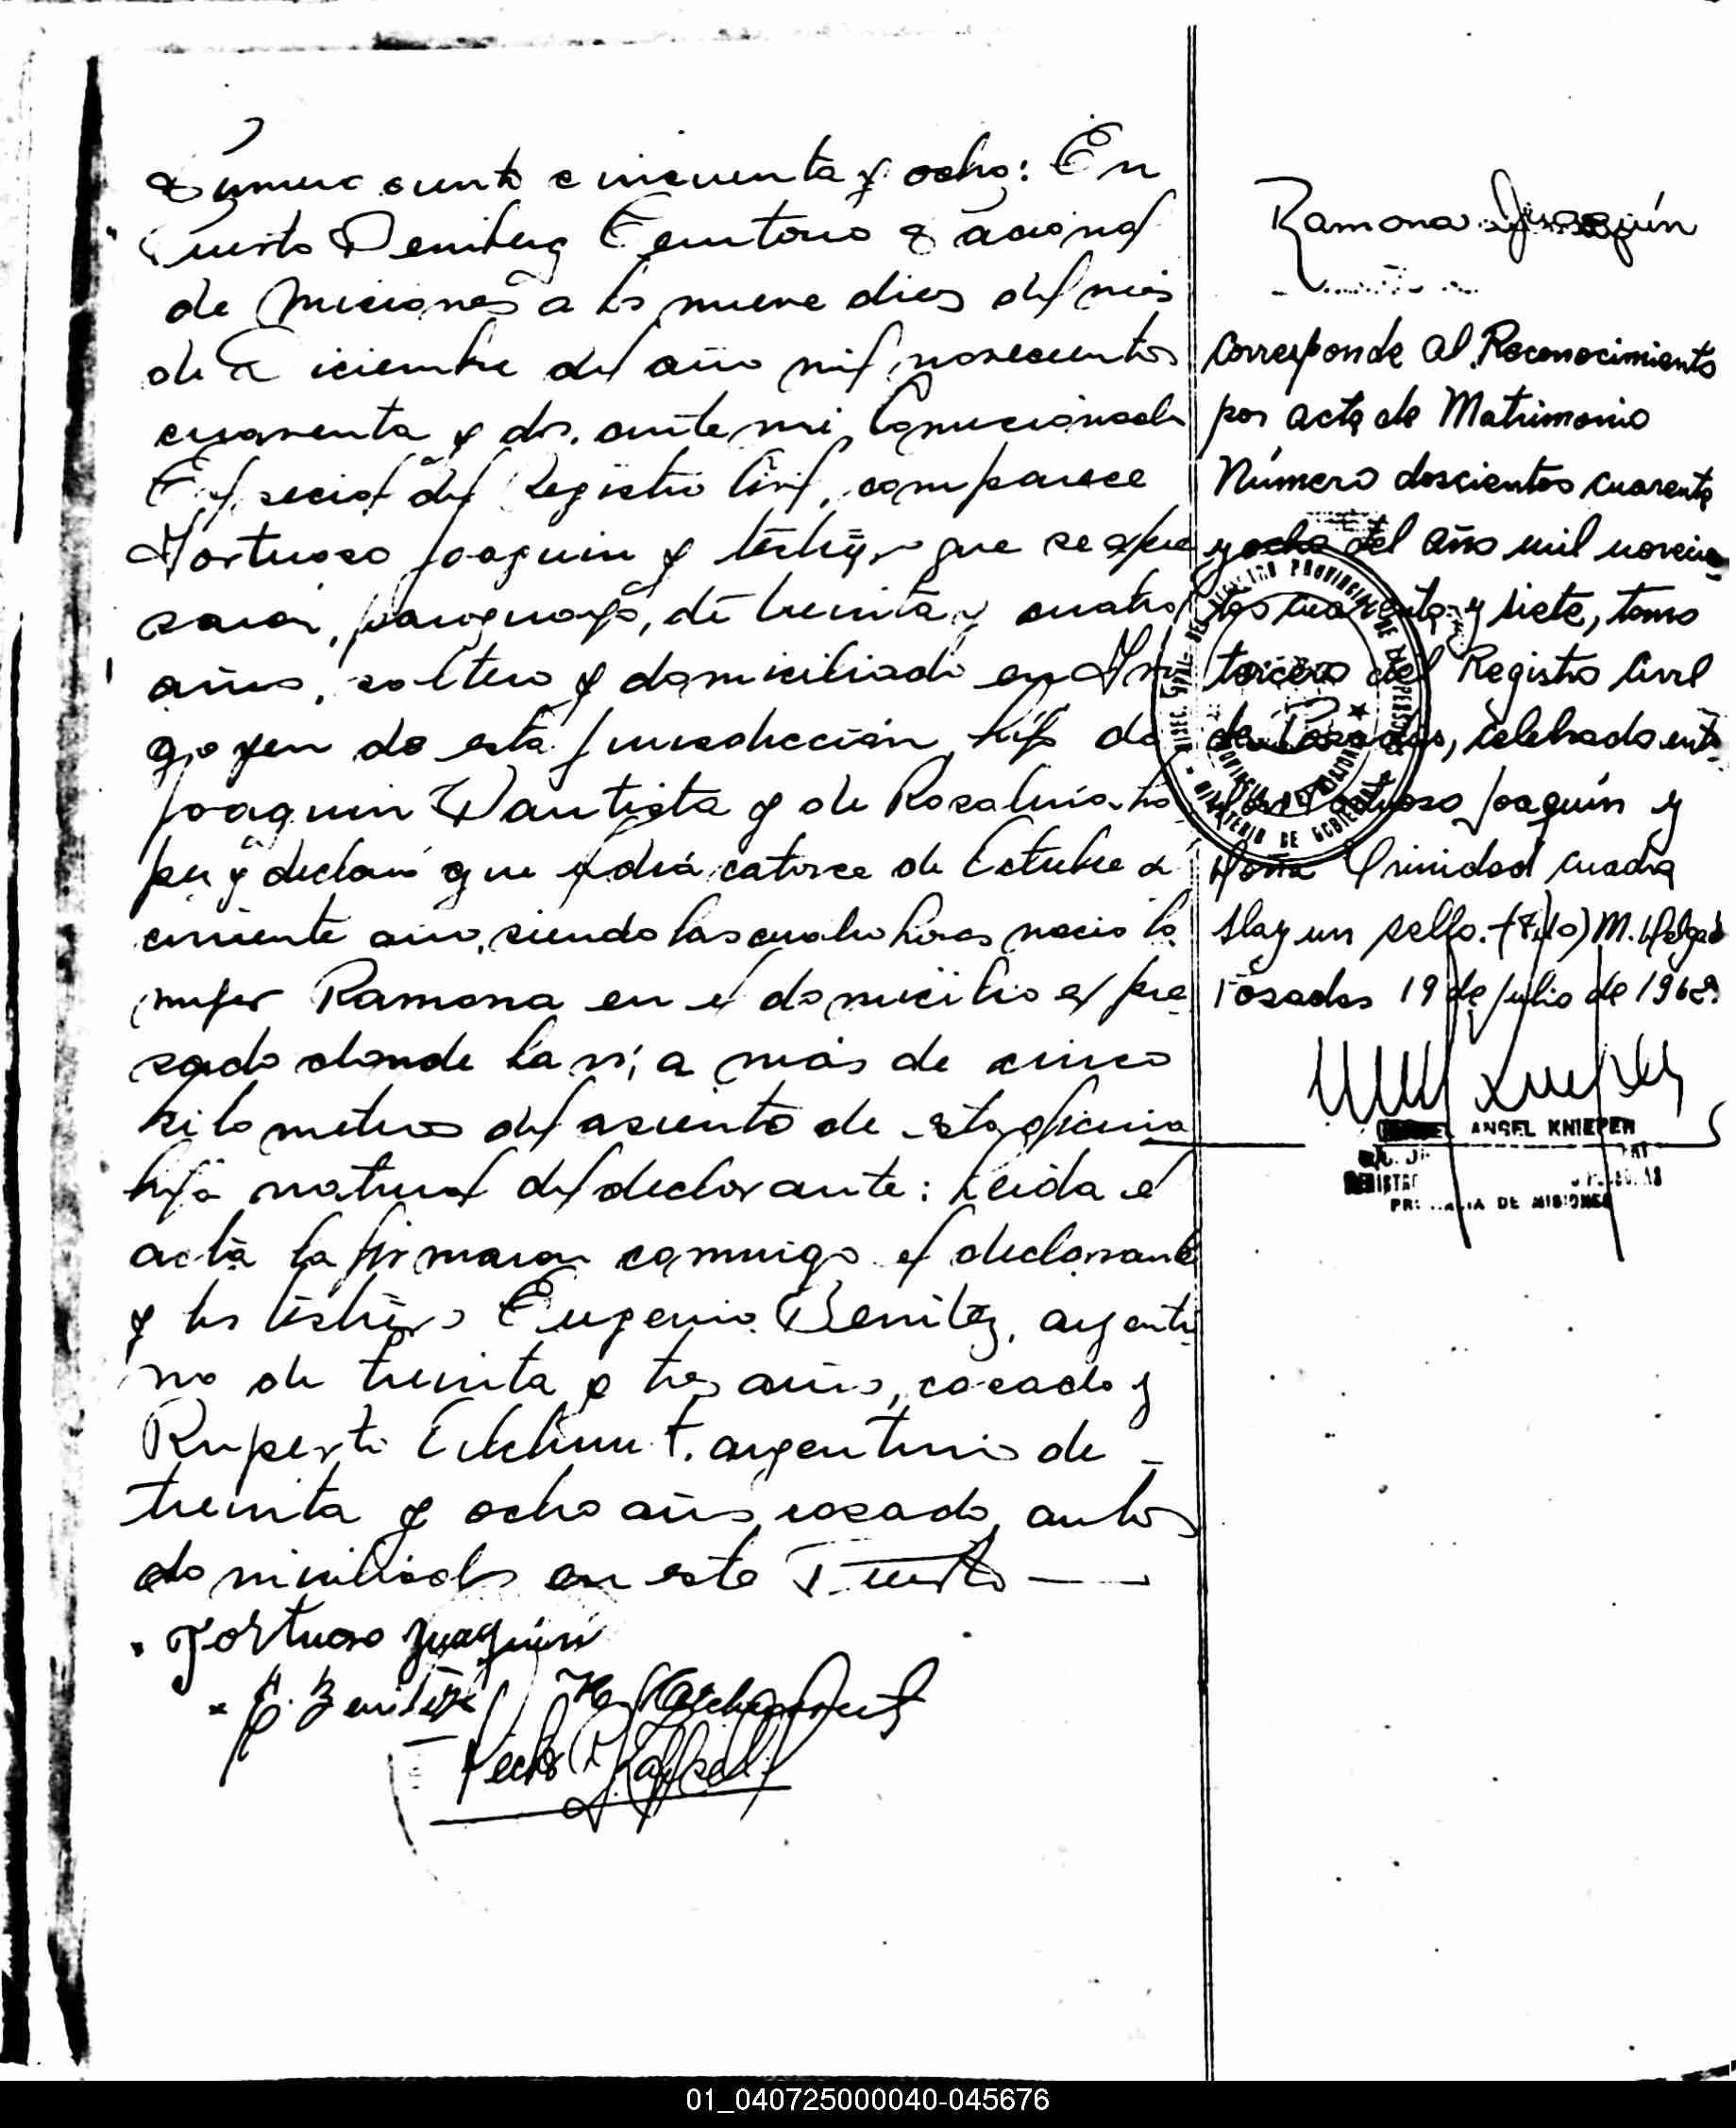 Número ciento cincuenta y ocho: En
Puerto Territorio Nacional
de Miciones a los nueve dias del mes
de Diciembre del año mil novecientos
cuarenta y dos, ante mi Comicionado
Especial del Registro Civil, comparece
Fortuoso Joaquin y testigos que se expre
saran, paraguayo, de treinta y cuatro
años, soltero y domiciliado en
de esta jurisdicción, hijo de
Joaquin Bautista y de
y declaró que el dia catorce de Octubre del
corriente año, siendo las cuatro horas nacio la
mujer Ramona en el domicilio expre
sado donde la vi, a más de cinco
kilometros del asiento de esta oficina
hija natural del declarante: Leida el
acta la firmaron conmigo el declarante
y los testigos Eugenio Benitez, argenti
no de treinta y tres años, casado y
Ruperto argentino de
treinta y ocho años, casado, ambos
domiciliados en este Puerto
Fortuoso Joaquin
E. Benitez
Ramona Joaquín
Corresponde al Reconocimiento
por acta de Matrimonio
Número doscientos cuarenta
y ocho del año mil novecien
tos cuarenta y siete, tomo
tercero del Registro Civil
de Posadas, celebrado entre
Don Fortuoso Joaquín y
Doña Trinidad Cuadra
Hay un sello. (Fdo) M. Delgado
Posadas 19 de Julio de
ANGEL KNIEPER
PROVINCIA DE MISIONES
MINISTERIO DE GOBIERNO
01_040725000040-045676